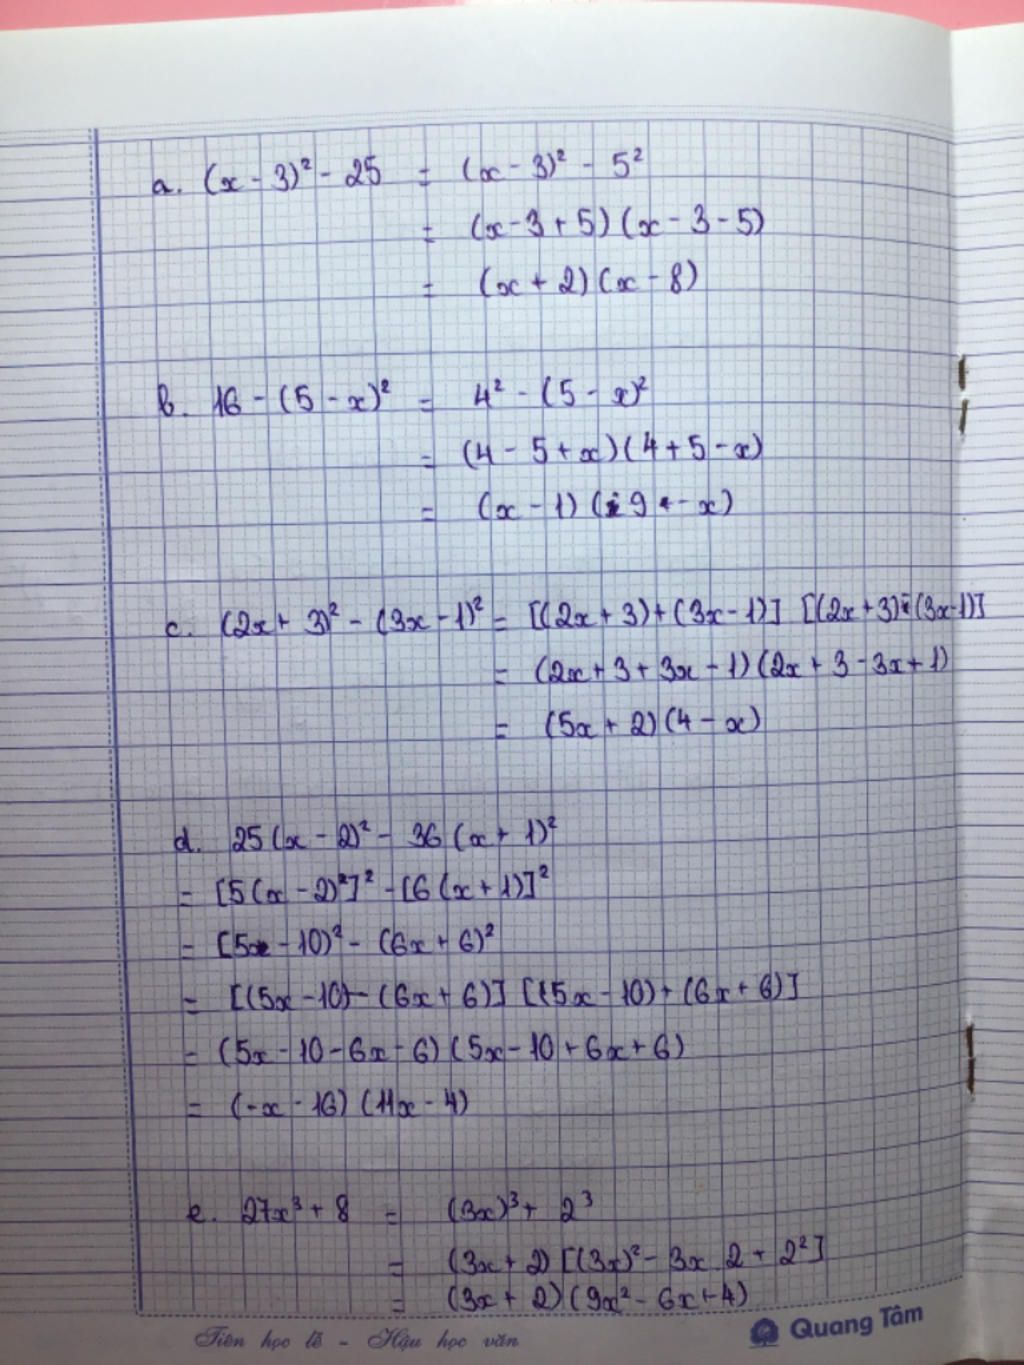 a. (x - 3)² - 25 = (x - 3)² - 5²
= (x - 3 + 5) (x - 3 - 5)
= (x + 2) (x - 8)
b. 16 - (5 - x)² = 4² - (5 - x)²
= (4 - 5 + x) (4 + 5 - x)
= (x - 1) (9 - x)
c. (2x + 3)² - (3x - 1)² = [(2x + 3) + (3x - 1)] [(2x + 3) - (3x - 1)]
= (2x + 3 + 3x - 1) (2x + 3 - 3x + 1)
= (5x + 2) (4 - x)
d. 25 (x - 2)² - 36 (x + 1)²
= [5 (x - 2)²]² - [6 (x + 1)]²
= (5x - 10)² - (6x + 6)²
= [(5x - 10) - (6x + 6)] [(5x - 10) + (6x + 6)]
= (5x - 10 - 6x - 6) (5x - 10 + 6x + 6)
= (-x - 16) (11x - 4)
e. 27x³ + 8 = (3x)³ + 2³
= (3x + 2) [(3x)² - 3x 2 + 2²]
= (3x + 2) (9x² - 6x + 4)
Tiên học lễ - Hậu học văn
Quang Tâm